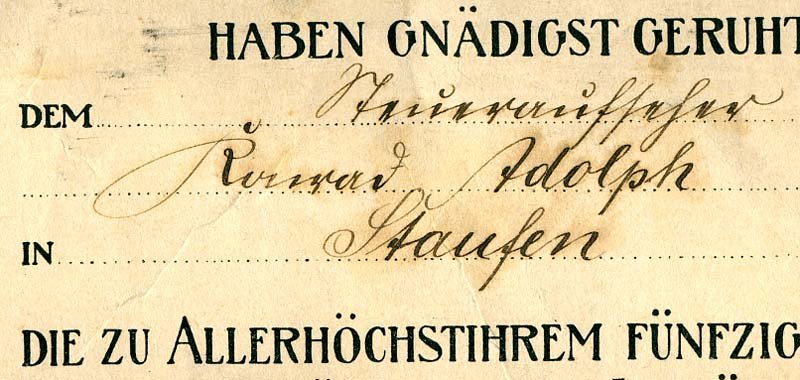 HABEN GNÄDIGST GERUHT
DEM Steueraufseher
Konrad Adolph
IN Staufen
DIE ZU ALLERHÖCHSTIHREM FÜNFZIG